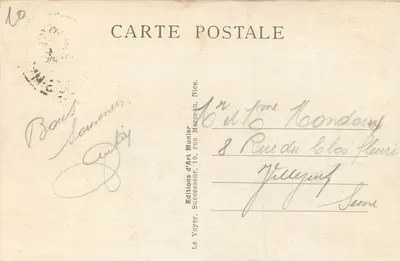 10
CARTE POSTALE
Bons
Souvenirs
Editions d'Art Munier
Le Voyer, Successeur, 19, rue Marceau, Nice.
Mr et Mme
8 Rue du Clos fleuri
Villejuif
Seine